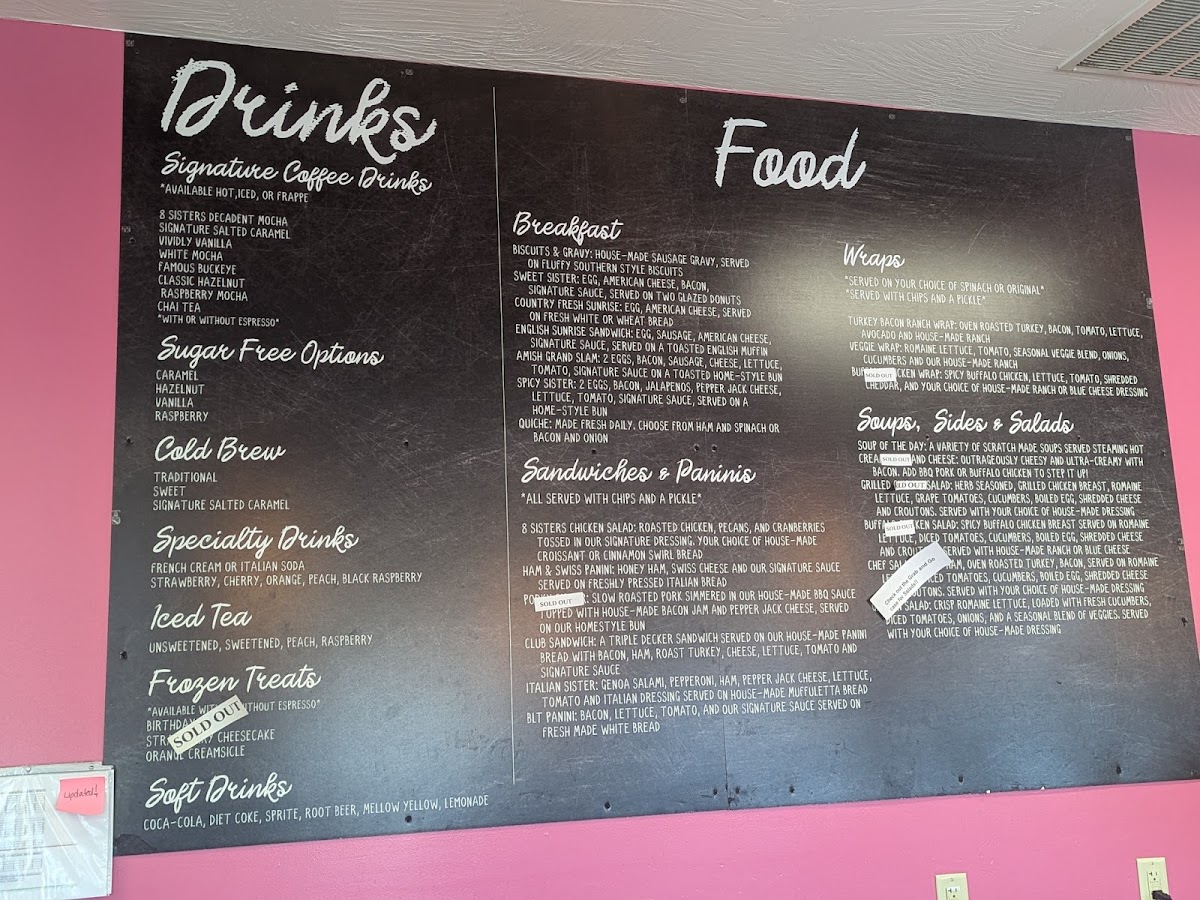 Drinks
Signature Coffee Drinks
*AVAILABLE HOT,ICED, OR FRAPPE
8 SISTERS DECADENT MOCHA
SIGNATURE SALTED CARAMEL
VIVIDLY VANILLA
WHITE MOCHA
FAMOUS BUCKEYE
CLASSIC HAZELNUT
RASPBERRY MOCHA
CHAI TEA
*WITH OR WITHOUT ESPRESSO*
Sugar Free Options
CARAMEL
HAZELNUT
VANILLA
RASPBERRY
Cold Brew
TRADITIONAL
SWEET
SIGNATURE SALTED CARAMEL
Specialty Drinks
FRENCH CREAM OR ITALIAN SODA
STRAWBERRY, CHERRY, ORANGE, PEACH, BLACK RASPBERRY
Iced Tea
UNSWEETENED, SWEETENED, PEACH, RASPBERRY
Frozen Treats
*AVAILABLE WITHOUT ESPRESSO*
BIRTHDAY
SOLD OUT
CHEESECAKE
ORANGE CREAMSICLE
Soft Drinks
COCA-COLA, DIET COKE, SPRITE, ROOT BEER, MELLOW YELLOW, LEMONADE
Food
Breakfast
BISCUITS & GRAVY: HOUSE-MADE SAUSAGE GRAVY, SERVED
ON FLUFFY SOUTHERN STYLE BISCUITS
SWEET SISTER: EGG, AMERICAN CHEESE, BACON,
SIGNATURE SAUCE, SERVED ON TWO GLAZED DONUTS
COUNTRY FRESH SUNRISE: EGG, AMERICAN CHEESE, SERVED
ON FRESH WHITE OR WHEAT BREAD
ENGLISH SUNRISE SANDWICH: EGG, SAUSAGE, AMERICAN CHEESE,
SIGNATURE SAUCE, SERVED ON A TOASTED ENGLISH MUFFIN
AMISH GRAND SLAM: 2 EGGS, BACON, SAUSAGE, CHEESE, LETTUCE,
TOMATO, SIGNATURE SAUCE ON A TOASTED HOME-STYLE BUN
SPICY SISTER: 2 EGGS, BACON, JALAPENOS, PEPPER JACK CHEESE,
LETTUCE, TOMATO, SIGNATURE SAUCE, SERVED ON A
HOME-STYLE BUN
QUICHE: MADE FRESH DAILY. CHOOSE FROM HAM AND SPINACH OR
BACON AND ONION
Sandwiches & Paninis
*ALL SERVED WITH CHIPS AND A PICKLE*
8 SISTERS CHICKEN SALAD: ROASTED CHICKEN, PECANS, AND CRANBERRIES
TOSSED IN OUR SIGNATURE DRESSING. YOUR CHOICE OF HOUSE-MADE
CROISSANT OR CINNAMON SWIRL BREAD
HAM & SWISS PANINI: HONEY HAM, SWISS CHEESE AND OUR SIGNATURE SAUCE
SERVED ON FRESHLY PRESSED ITALIAN BREAD
SOLD OUT : SLOW ROASTED PORK SIMMERED IN OUR HOUSE-MADE BBQ SAUCE
TOPPED WITH HOUSE-MADE BACON JAM AND PEPPER JACK CHEESE, SERVED
ON OUR HOMESTYLE BUN
CLUB SANDWICH: A TRIPLE DECKER SANDWICH SERVED ON OUR HOUSE-MADE PANINI
BREAD WITH BACON, HAM, ROAST TURKEY, CHEESE, LETTUCE, TOMATO AND
SIGNATURE SAUCE
ITALIAN SISTER: GENOA SALAMI, PEPPERONI, HAM, PEPPER JACK CHEESE, LETTUCE,
TOMATO AND ITALIAN DRESSING SERVED ON HOUSE-MADE MUFFULETTA BREAD
BLT PANINI: BACON, LETTUCE, TOMATO, AND OUR SIGNATURE SAUCE SERVED ON
FRESH MADE WHITE BREAD
Wraps
*SERVED ON YOUR CHOICE OF SPINACH OR ORIGINAL*
*SERVED WITH CHIPS AND A PICKLE*
TURKEY BACON RANCH WRAP: OVEN ROASTED TURKEY, BACON, TOMATO, LETTUCE,
AVOCADO AND HOUSE-MADE RANCH
VEGGIE WRAP: ROMAINE LETTUCE, TOMATO, SEASONAL VEGGIE BLEND, ONIONS,
CUCUMBERS AND OUR HOUSE-MADE RANCH
SOLD OUT WRAP: SPICY BUFFALO CHICKEN, LETTUCE, TOMATO, SHREDDED
CHEDDAR, AND YOUR CHOICE OF HOUSE-MADE RANCH OR BLUE CHEESE DRESSING
Soups, Sides & Salads
SOUP OF THE DAY: A VARIETY OF SCRATCH MADE SOUPS SERVED STEAMING HOT
SOLD OUT AND CHEESE: OUTRAGEOUSLY CHEESY AND ULTRA-CREAMY WITH
BACON. ADD BBQ PORK OR BUFFALO CHICKEN TO STEP IT UP!
GRILLED SOLD OUT SALAD: HERB SEASONED, GRILLED CHICKEN BREAST, ROMAINE
LETTUCE, GRAPE TOMATOES, CUCUMBERS, BOILED EGG, SHREDDED CHEESE
AND CROUTONS. SERVED WITH YOUR CHOICE OF HOUSE-MADE DRESSING
SOLD OUT SALAD: SPICY BUFFALO CHICKEN BREAST SERVED ON ROMAINE
LETTUCE, DICED TOMATOES, CUCUMBERS, BOILED EGG, SHREDDED CHEESE
AND SERVED WITH HOUSE-MADE RANCH OR BLUE CHEESE
CHEF HAM, OVEN ROASTED TURKEY, BACON, SERVED ON ROMAINE
TOMATOES, CUCUMBERS, BOILED EGG, SHREDDED CHEESE
SERVED WITH YOUR CHOICE OF HOUSE-MADE DRESSING
SALAD: CRISP ROMAINE LETTUCE, LOADED WITH FRESH CUCUMBERS,
DICED TOMATOES, ONIONS, AND A SEASONAL BLEND OF VEGGIES. SERVED
WITH YOUR CHOICE OF HOUSE-MADE DRESSING
Check out the Grab and Go
case for Salads!
updated!